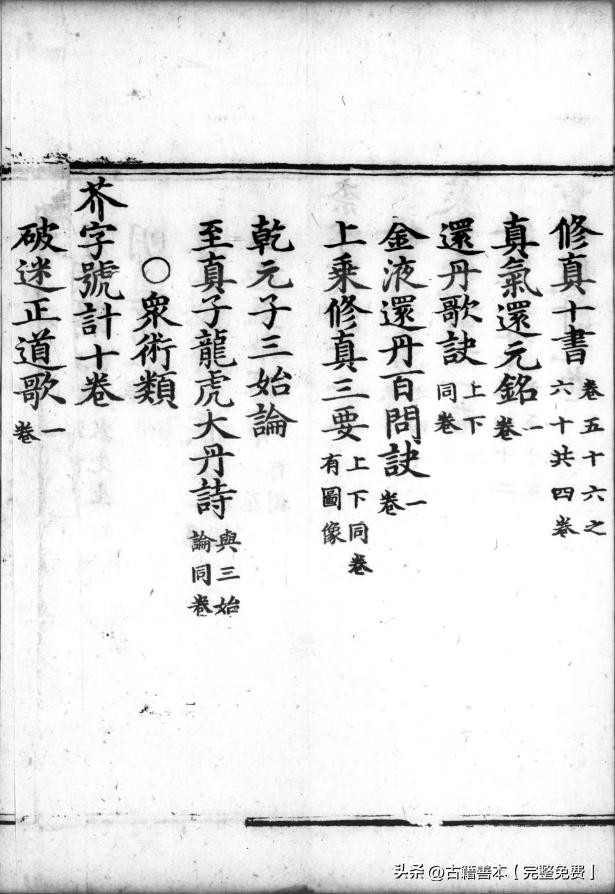 修真十書卷五十六之六十共四卷
真氣還元銘一卷
還丹歌訣上下同卷
金液還丹百問訣一卷
上乘修真三要上下同卷有圖像
乾元子三始論
至真子龍虎大丹詩與三始論同卷
○衆術類
芥字號計十卷
破迷正道歌一卷
头条@古籍善本【完整免费】